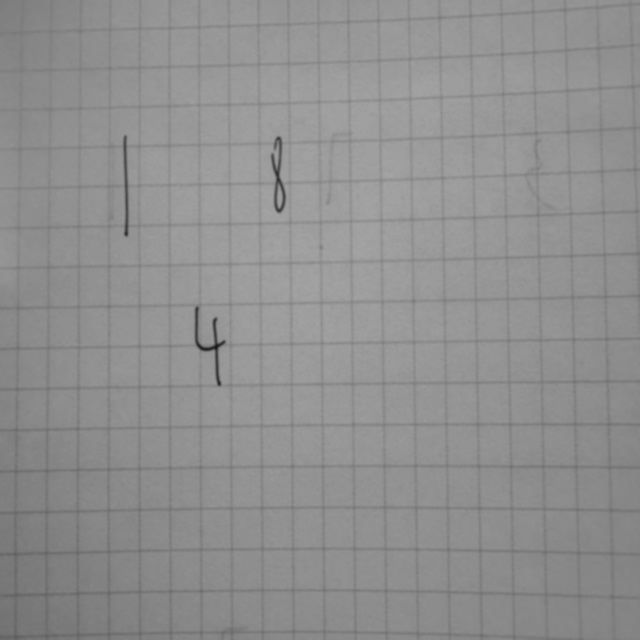 1 8
4